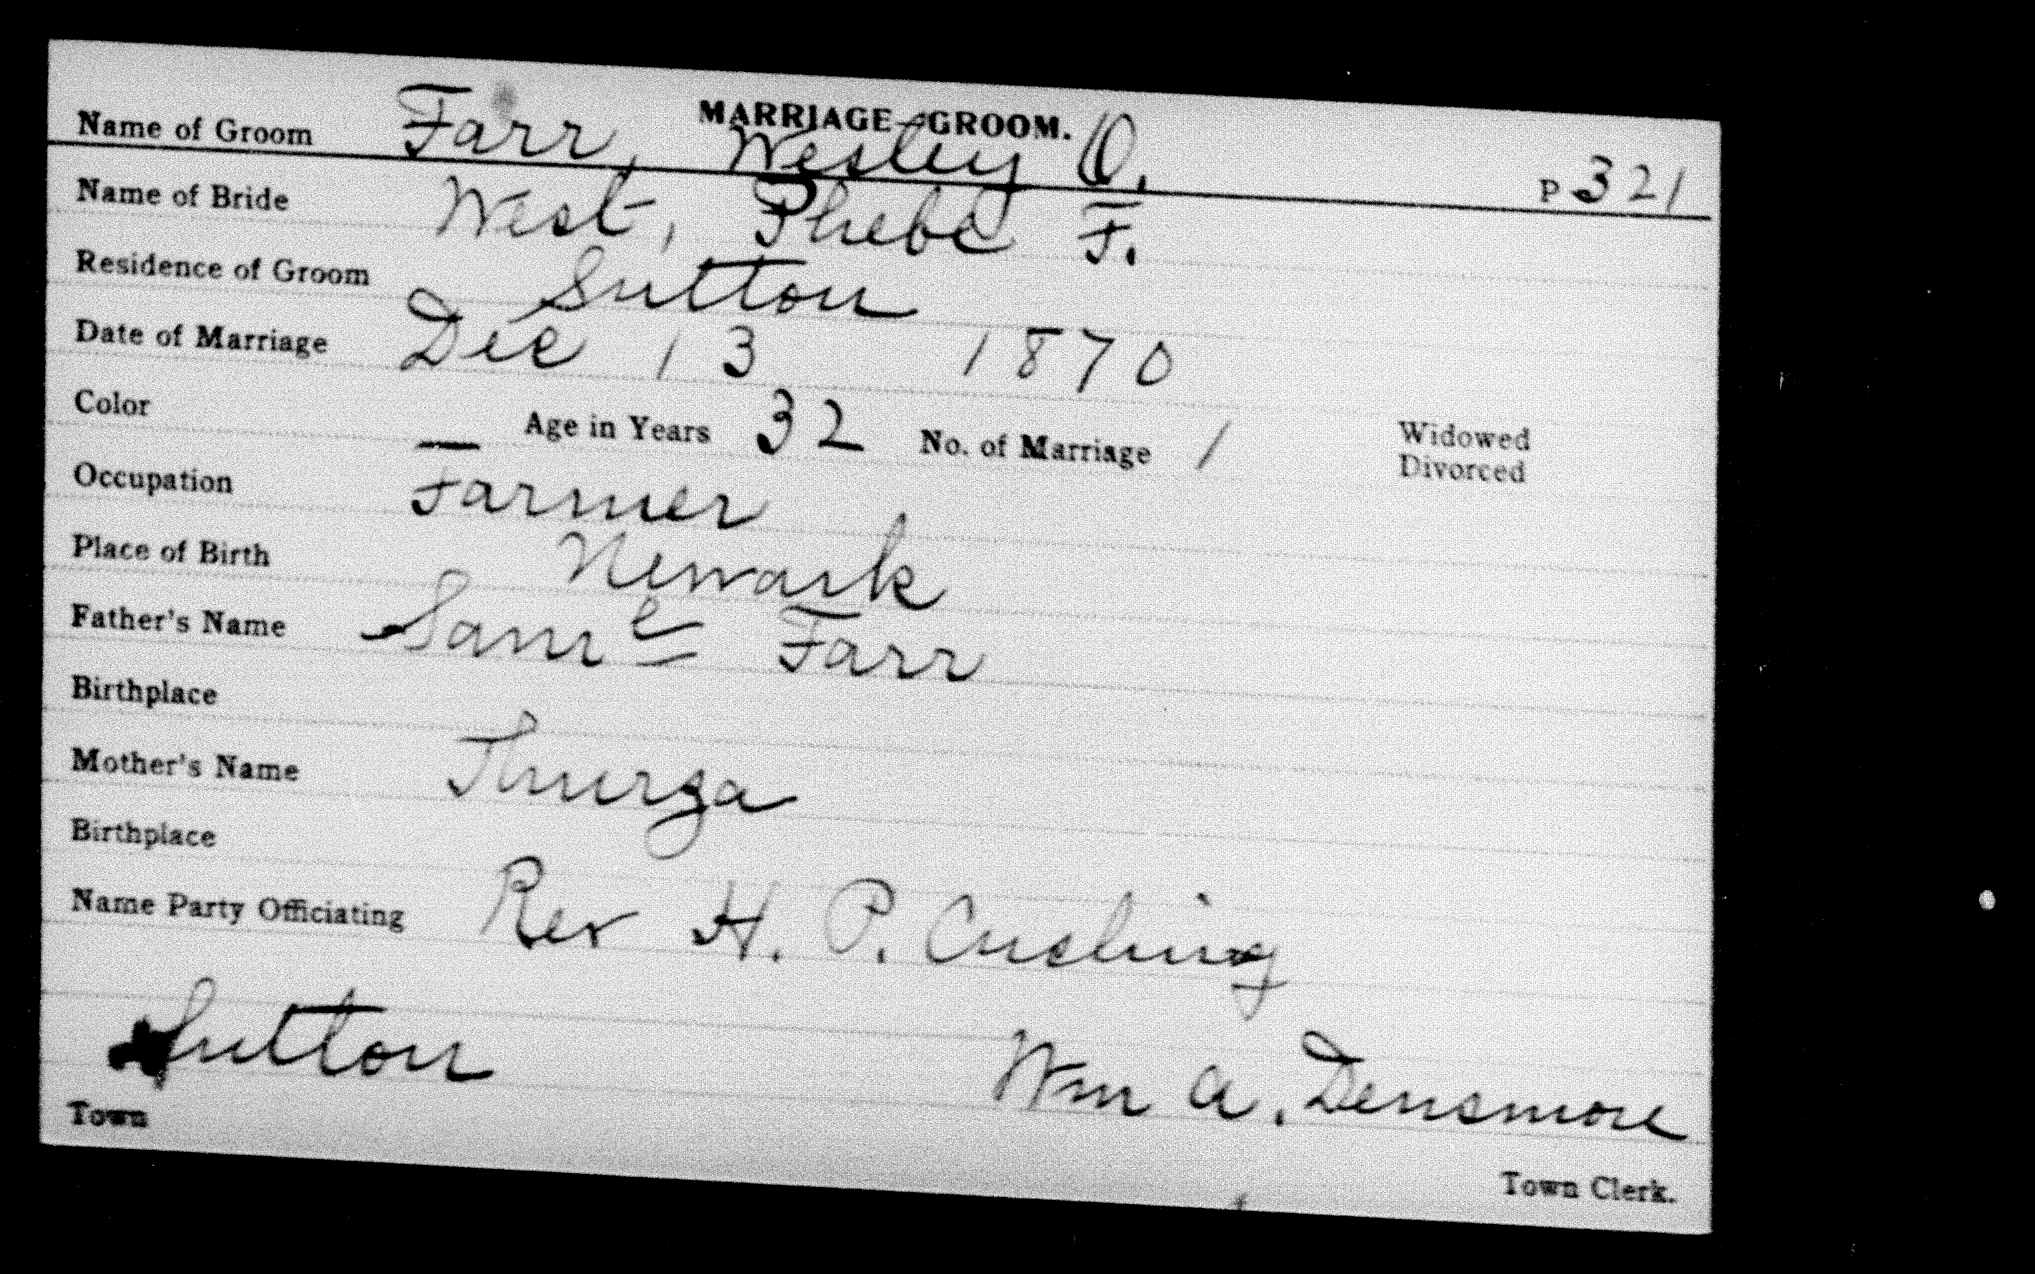 MARRIAGE—GROOM.
Name of Groom Farr, Wesley O. P 321
Name of Bride West, Phebe F.
Residence of Groom Sutton
Date of Marriage Dec 13 1870
Color — Age in Years 32 No. of Marriage 1 Widowed
Divorced
Occupation Farmer
Place of Birth Newark
Father's Name Saml Farr
Birthplace
Mother's Name Thurza
Birthplace
Name Party Officiating Rev H. P. Cushing
Sutton Wm A. Densmore
Town
Town Clerk.